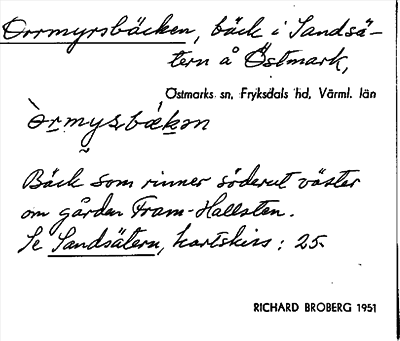 Orrmyrsbäcken, bäck i Sandsä-
tern å Östmark,
Östmarks sn, Fryksdals hd, Värml. län
òrmys̰bǽkən
Bäck som rinner söderut väster
om gården Fram-Hallsten.
Se Sandsätern, kartskiss: 25.
RICHARD BROBERG 1951